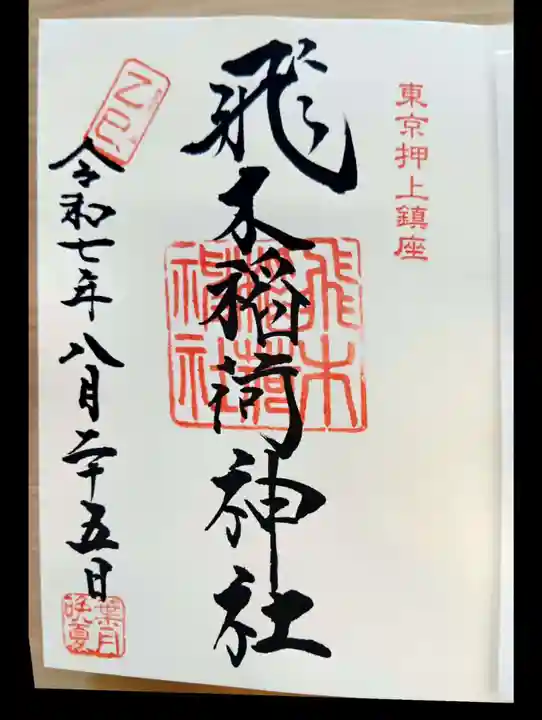 東京押上鎮座
飛木稲荷神社
飛木
稲荷
神社
令和七年八月二十五日
葉月
晩夏